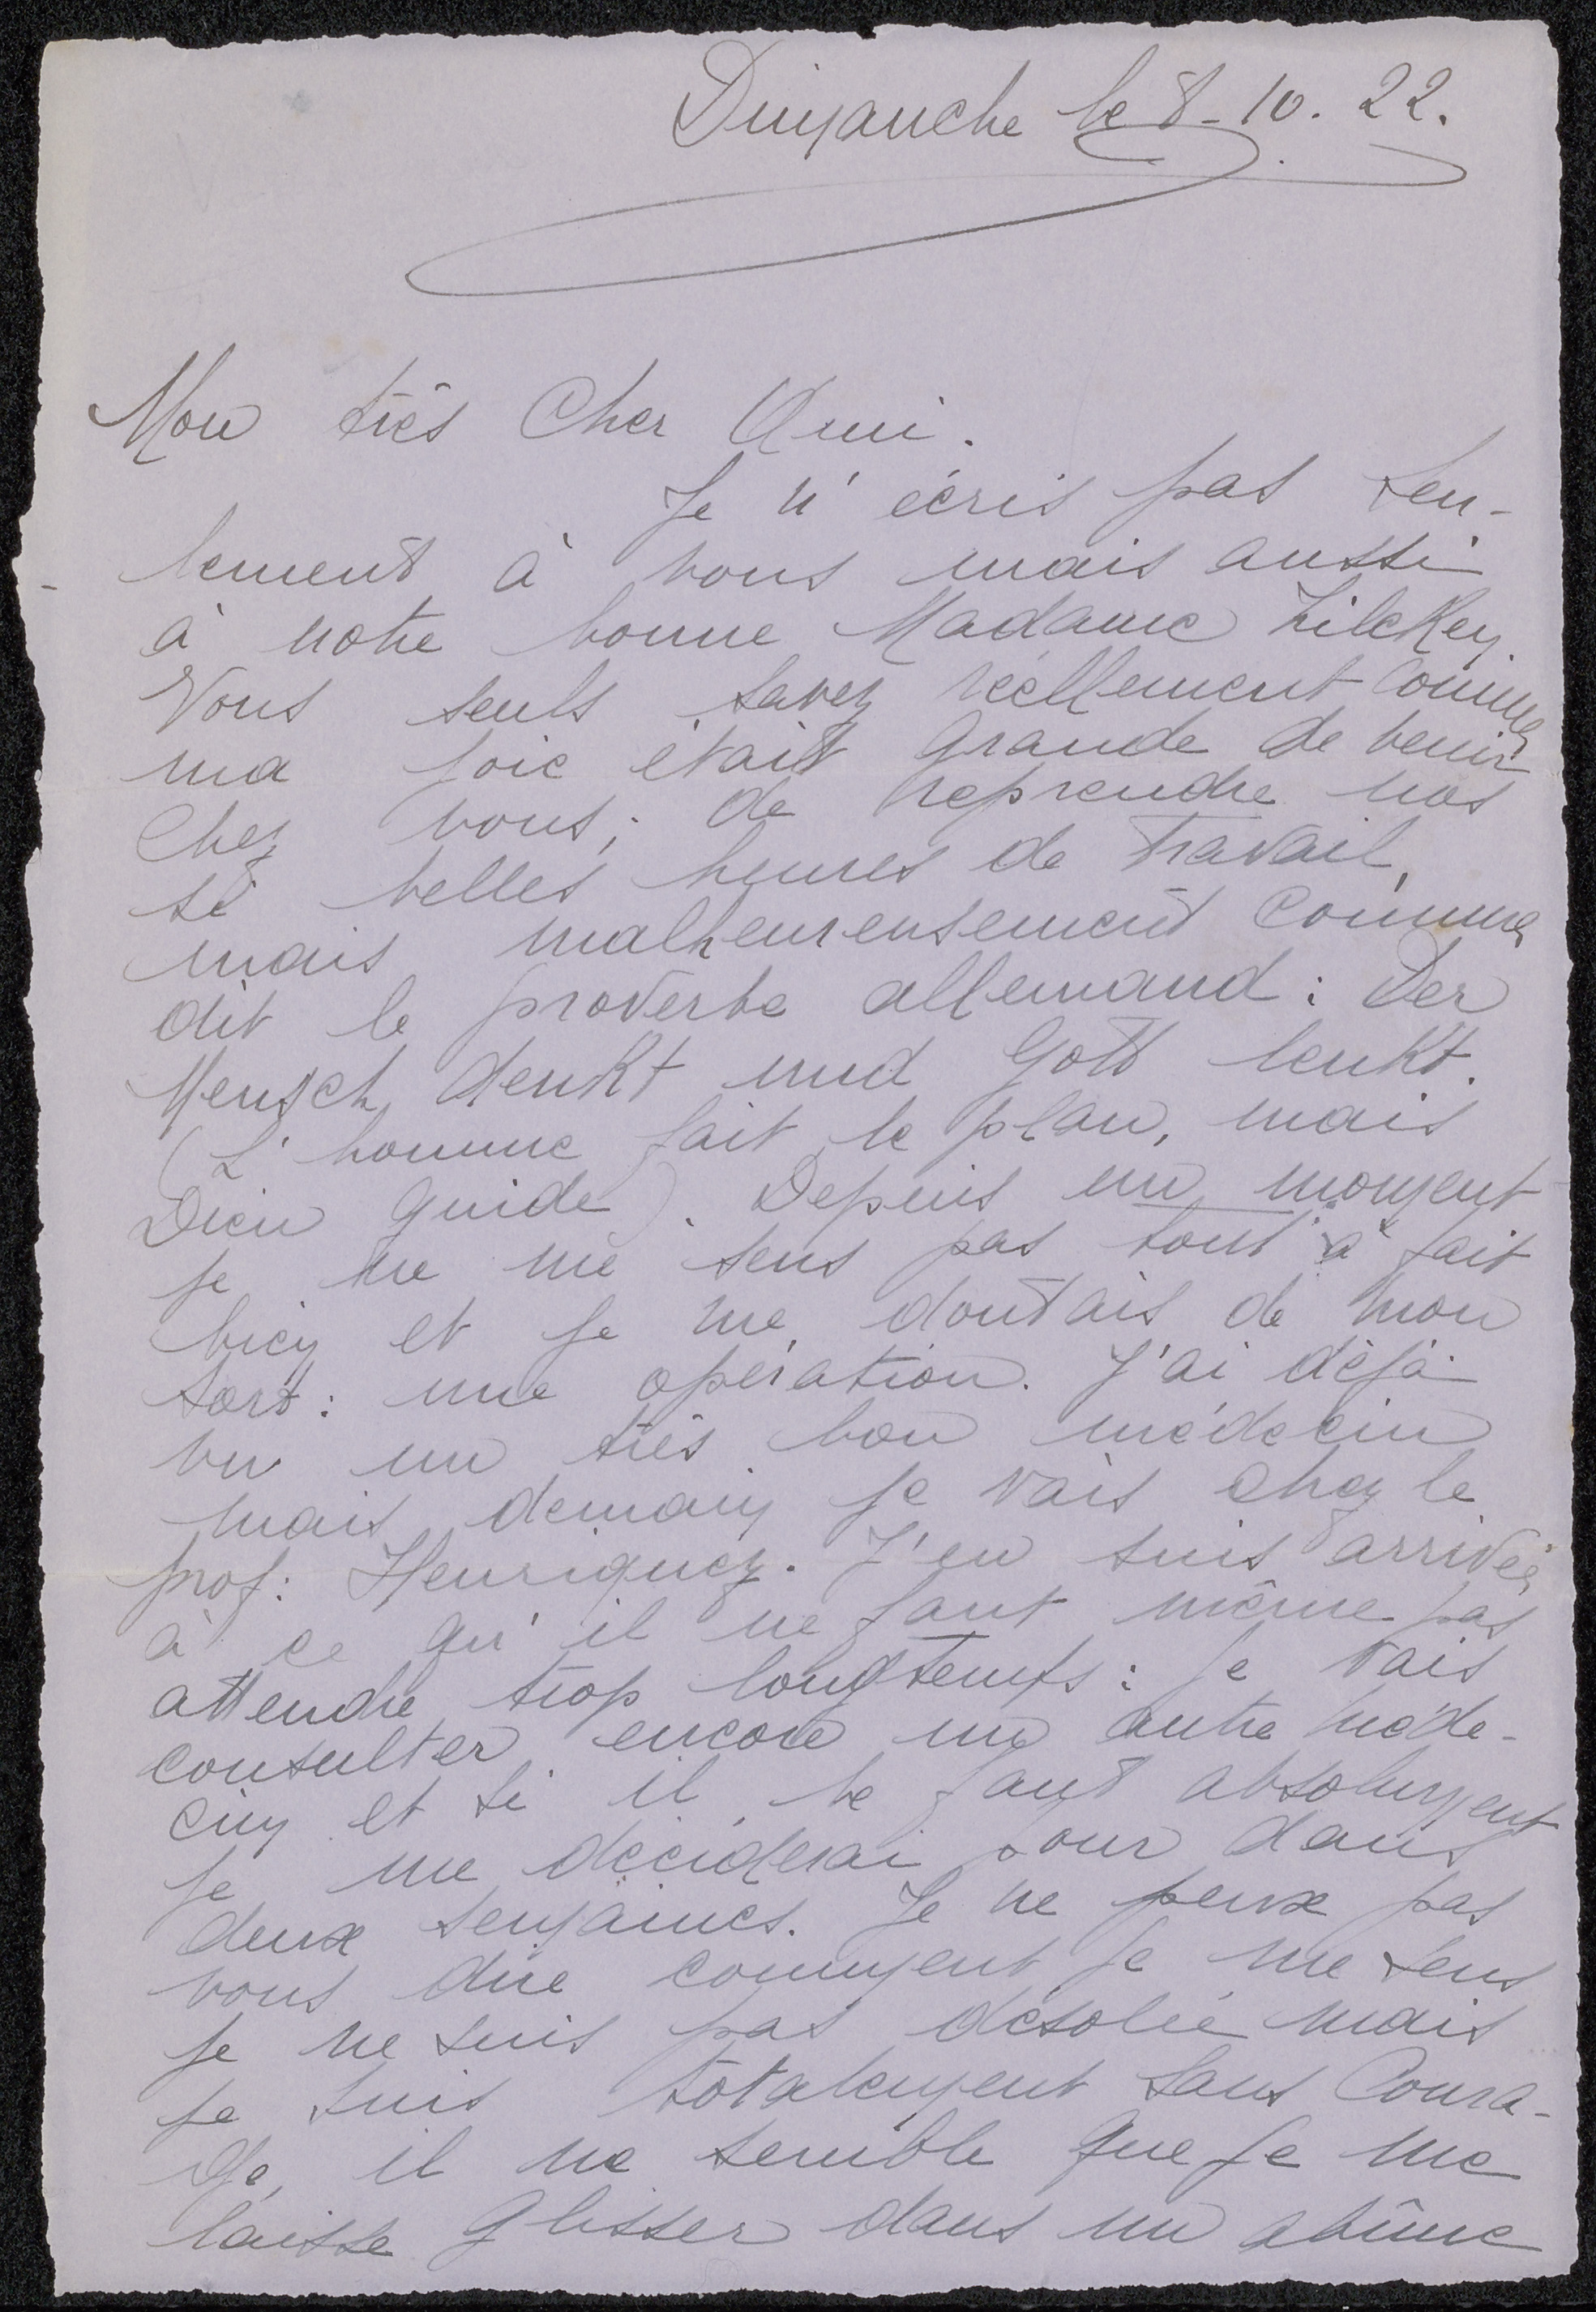 Dimanche le 8-10.22.
Mon très Cher Ami.
Je n'écris pas seu-
lement à vous mais aussi
à notre bonne Madame Zilcken.
Vous seuls savez réellement comme
ma joie était grande de venir
chez vous; de reprendre nos
si belles heures de travail,
mais malheureusement comme
dit le proverbe allemand: Der
Mensch denkt und Gott lenkt.
(L'homme fait le plan, mais
Dieu guide). Depuis un moment
je ne me sens pas tout à fait
bien et je me doutais de mon
sort: une opération. J'ai déjà
vu un très bon médecin
mais demain je vais chez le
prof: Henriquez. J'en suis arrivée
à ce qu'il ne faut même pas
attendre trop longtemps: je vais
consulter encore un autre méde-
cin et si il le faut absolument
je me déciderai pour dans
deux semaines. Je ne peux pas
vous dire comment je me sens
je ne suis pas désolée mais
je suis totalement sans coura-
ge, il me semble que je me
laisse glisser dans un abîme